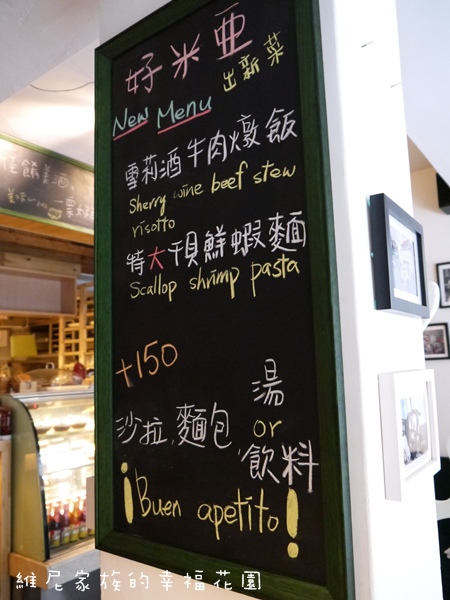 好米亚
出新菜
New Menu
雪莉酒牛肉燉飯
Sherry wine beef stew
risotto
特大干貝鮮蝦麵
Scallop shrimp pasta
+150
沙拉,麵包
湯
or
飲料
¡Buen apetito!
維尼家族的幸福花園